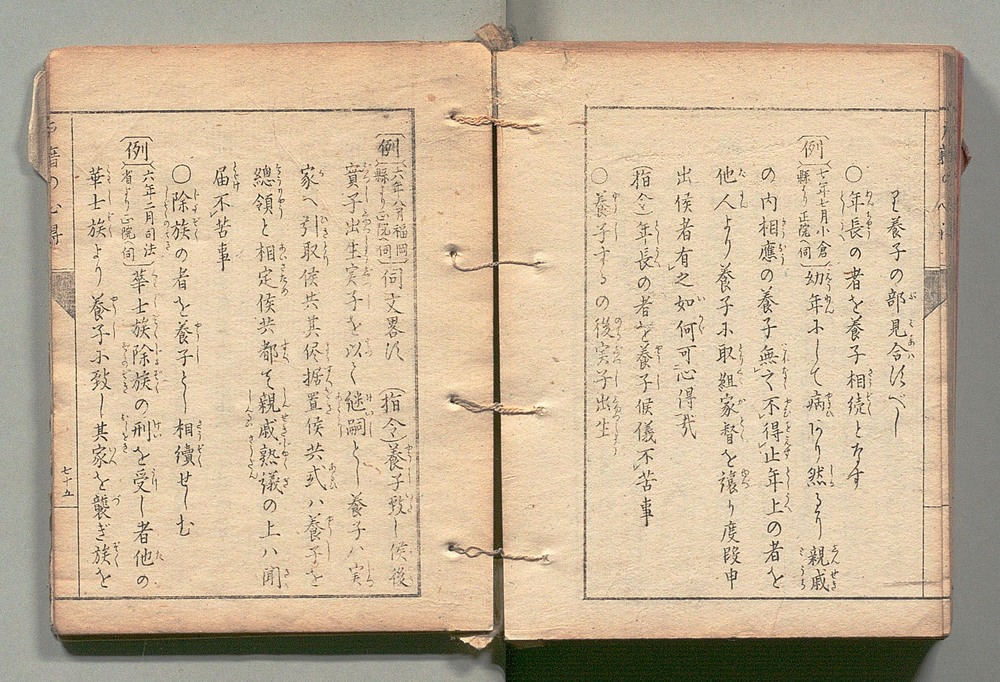 見養子の部見合すべし
〇年長の者を養子相続となす
例 七年七月小倉縣より正院へ伺 幼年にして病あり然るより親戚
の内相應の養子無之不得止年上の者を
他人より養子に取組家督を譲り度段申
出候者有之如何可心得哉
(指令)年長の者を養子候儀不苦事
〇養子するの後実子出生
例 六年八月福岡縣より正院へ伺 伺文畧す (指令)養子致し候後
實子出生実子を以て継嗣とし養子ハ実
家へ引取候共其侭据置候共或ハ養子を
總領と相定候共都て親戚熟議の上ハ聞
届不苦事
〇除族の者を養子とし相續せしむ
例 六年二月司法省より正院へ伺 華士族除族の刑を受し者他の
華士族より養子に致し其家を襲ぎ族を
七十五